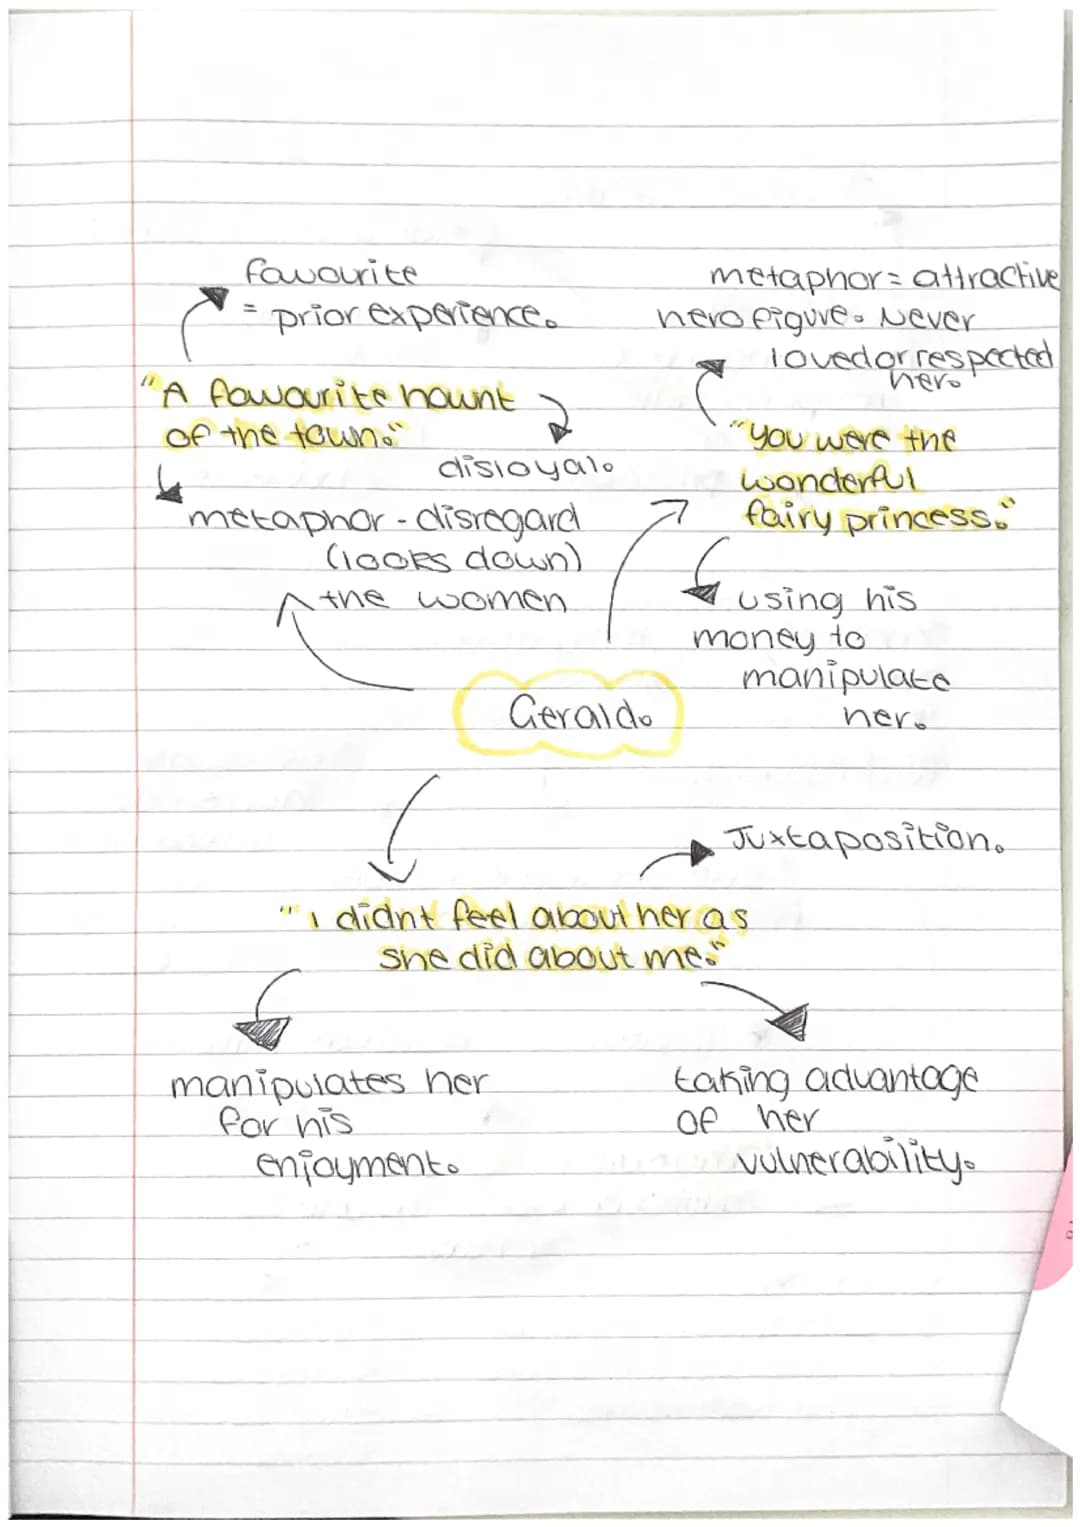 favourite
= prior experience.
"A favourite haunt
of the town."
disloyal.
metaphor - disregard
(looks down)
the women
metaphor = attractive
hero figure. Never
loved or respected
her.
"you were the
wonderful
fairy princess."
using his
money to
manipulate
her.
Gerald.
Juxtaposition.
"I didnt feel about her as
she did about me."
manipulates her
for his
enjoyment.
taking advantage
of her
vulnerability.